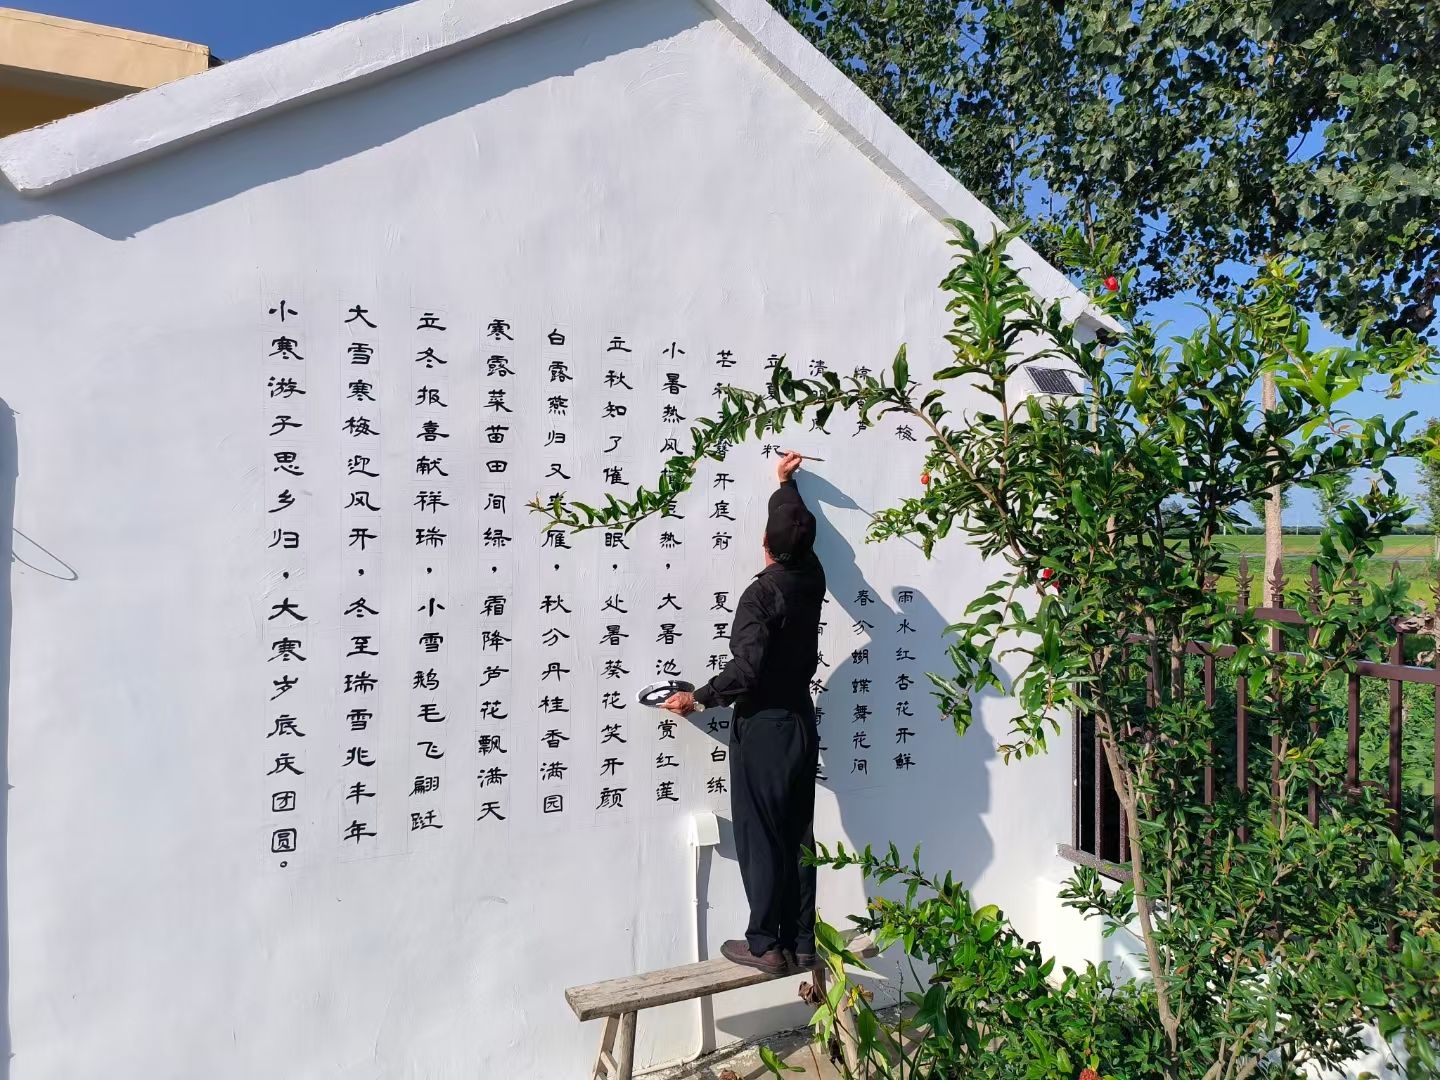 梅 雨水红杏花开鲜
芦 春分蝴蝶舞花间
清 风
立夏
芒 开庭前 夏至稻 如白练
小暑热风 热，大暑池 赏红莲
立秋知了催 眠，处暑葵花笑开颜
白露燕归又 雁，秋分丹桂香满园
寒露菜苗田间绿，霜降芦花飘满天
立冬报喜献祥瑞，小雪鹅毛飞翩跹
大雪寒梅迎风开，冬至瑞雪兆丰年
小寒游子思乡归，大寒岁底庆团圆。